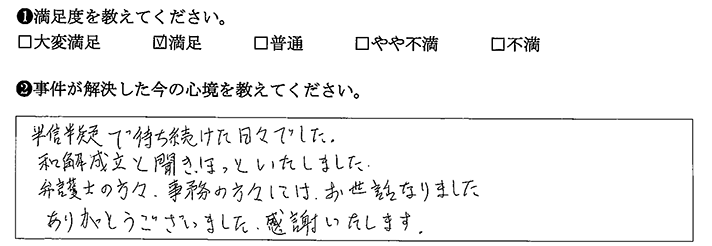 ❶満足度を教えてください。
□大変満足 ☑満足 □普通 □やや不満 □不満
❷事件が解決した今の心境を教えてください。
半信半疑で待ち続けた日々でした。
和解成立と聞きほっといたしました。
弁護士の方々、事務の方々には、お世話なりました
ありがとうございました。感謝いたします。